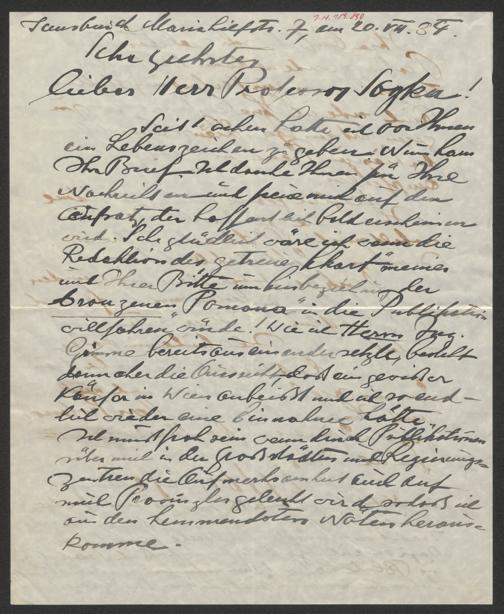 Innsbruck Mariahilfstr. 7, am 20. VII. 34.
Sehr geehrter
lieber Herr Professor Sogka!
Seit Wochen hatte ich vor Ihnen
ein Lebenszeichen zu geben. Nun kam
Ihr Brief. Ich danke Ihnen für Ihre
Nachrichten und freue mich auf den
Aufsatz, der hoffentlich bald erscheinen
wird. Sehr glücklich wäre ich wenn die
Redaktion des getreue Ekhart meines
und Ihrer Bitte um Einbeziehung der
bronzenen "Pomona" in die Publikation
willfahren würde! Wie ich Herrn Ing.
bereits auseinandersetzte, besteht
daher die Aussicht, dass ein
Käufer in Wien anbeisst und ich so end-
lich wieder eine Einnahme hätte.
Ich muss froh sein wenn durch Publikationen
über mich in den Grossstädten und Regierungs-
zentren die Aufmerksamkeit auch auf
mich gelenkt wird, sodass ich
aus den hemmendsten heraus-
komme.